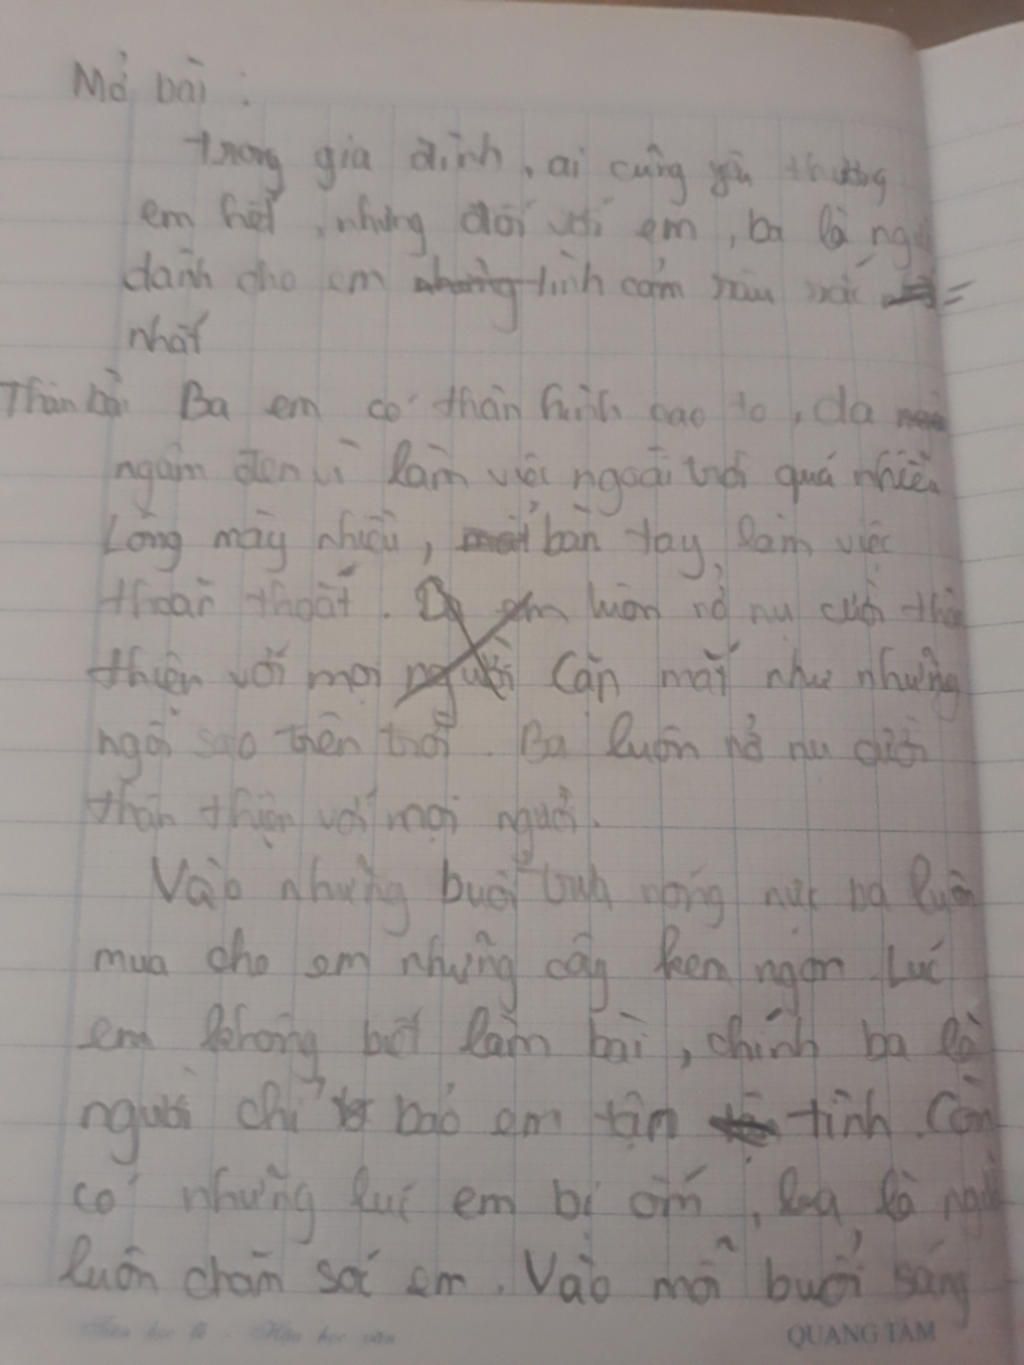 Mở bài :
trong gia đình, ai cũng yêu thương
em hết, nhưng đối với em, ba là
dành cho em tình cảm sâu sắc =
nhất
Thân bài Ba em có thân hình cao to, da
ngăm đen vì làm việc ngoài trời quá nhiều
Lông mày nhiều, bàn tay làm việc
thoăn thoắt. luôn nở nụ cười thân
thiện với mọi người Cặp mắt như những
ngôi sao trên trời. Ba luôn nở nụ cười
thân thiện với mọi người.
Vào những buổi trưa nóng nực ba luôn
mua cho em những cây kem ngon. Lúc
em không biết làm bài, chính ba là
người chỉ bảo em tận tình. Còn
có những lúc em bị ốm, ba là
luôn chăm sóc em. Vào mỗi buổi sáng
QUANG TÂM